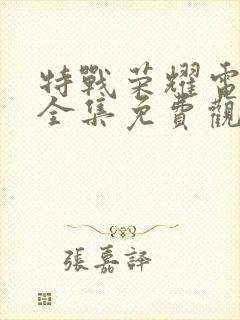 特戰荣耀電
全集免費觀
張嘉譯